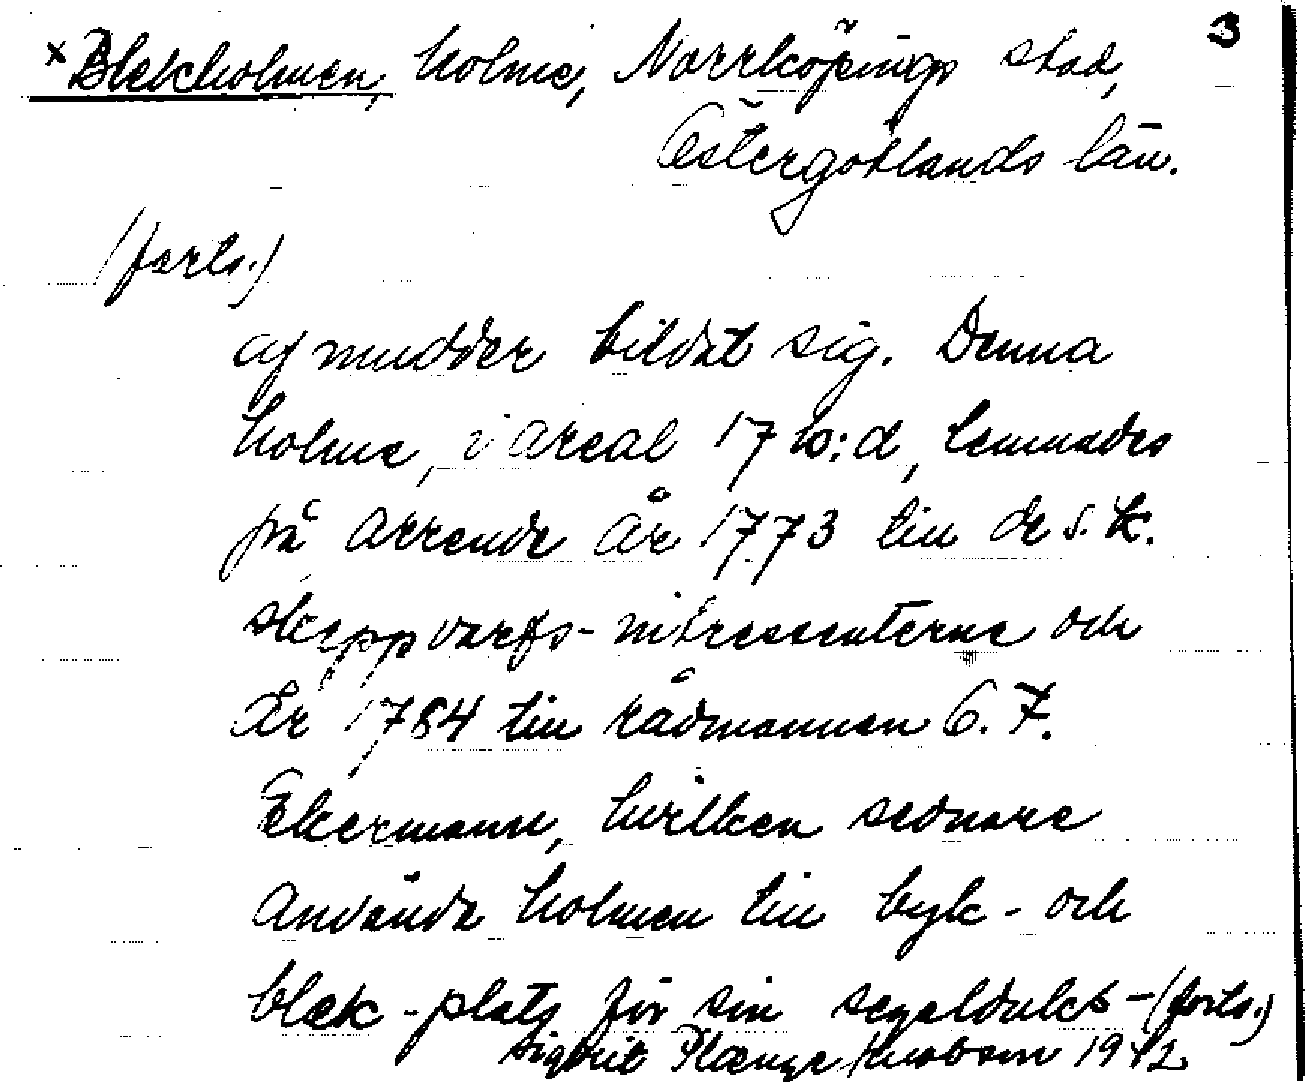 3
×Blekholmen, holme, Norrköpings stad,
Östergötlands län.
(forts.)
af mudder bildat sig. Denna
holme, i areal 17 , lemnades
på arrende år 1773 till de s.k.
skeppvarfs-intressenterne och
år 1784 till rådmannen C. F.
Ekermann, hvilken sednare
använde holmen till byk- och
blek-plats för sin segelduks-(forts.)
Sigurit Plænge Jacobson 1942